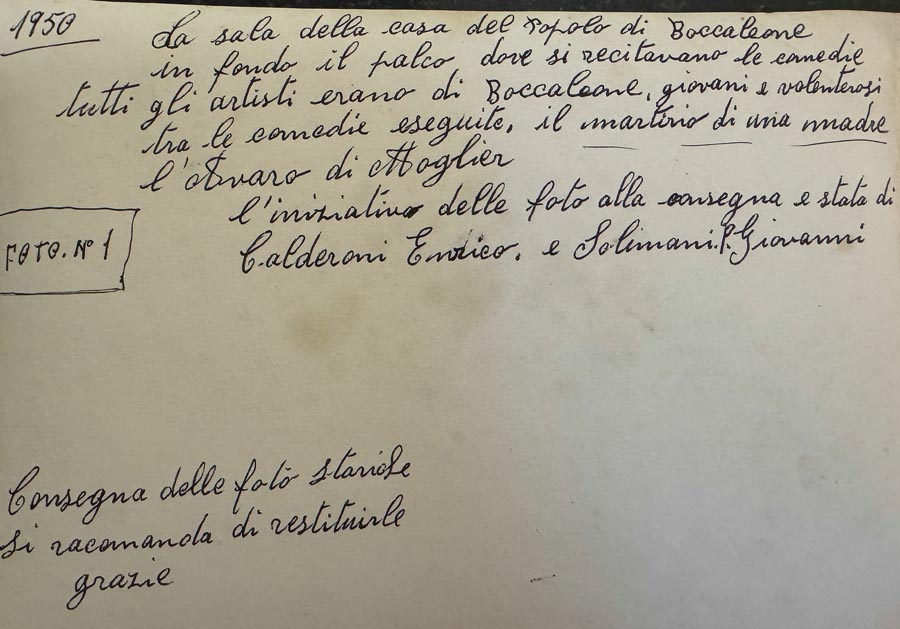 1950
La sala della casa del Popolo di Boccaleone
in fondo il palco dove si recitavano le comedie
tutti gli artisti erano di Boccaleone, giovani e volenterosi
tra le comedie eseguite, il martirio di una madre
l'Avaro di Moglier
l'iniziativa delle foto alla consegna e stata di
Calderoni Enrico, e Solimani.P.Giovanni
FOTO. Nº 1
Consegna delle foto storiche
si racomanda di restituirle
grazie